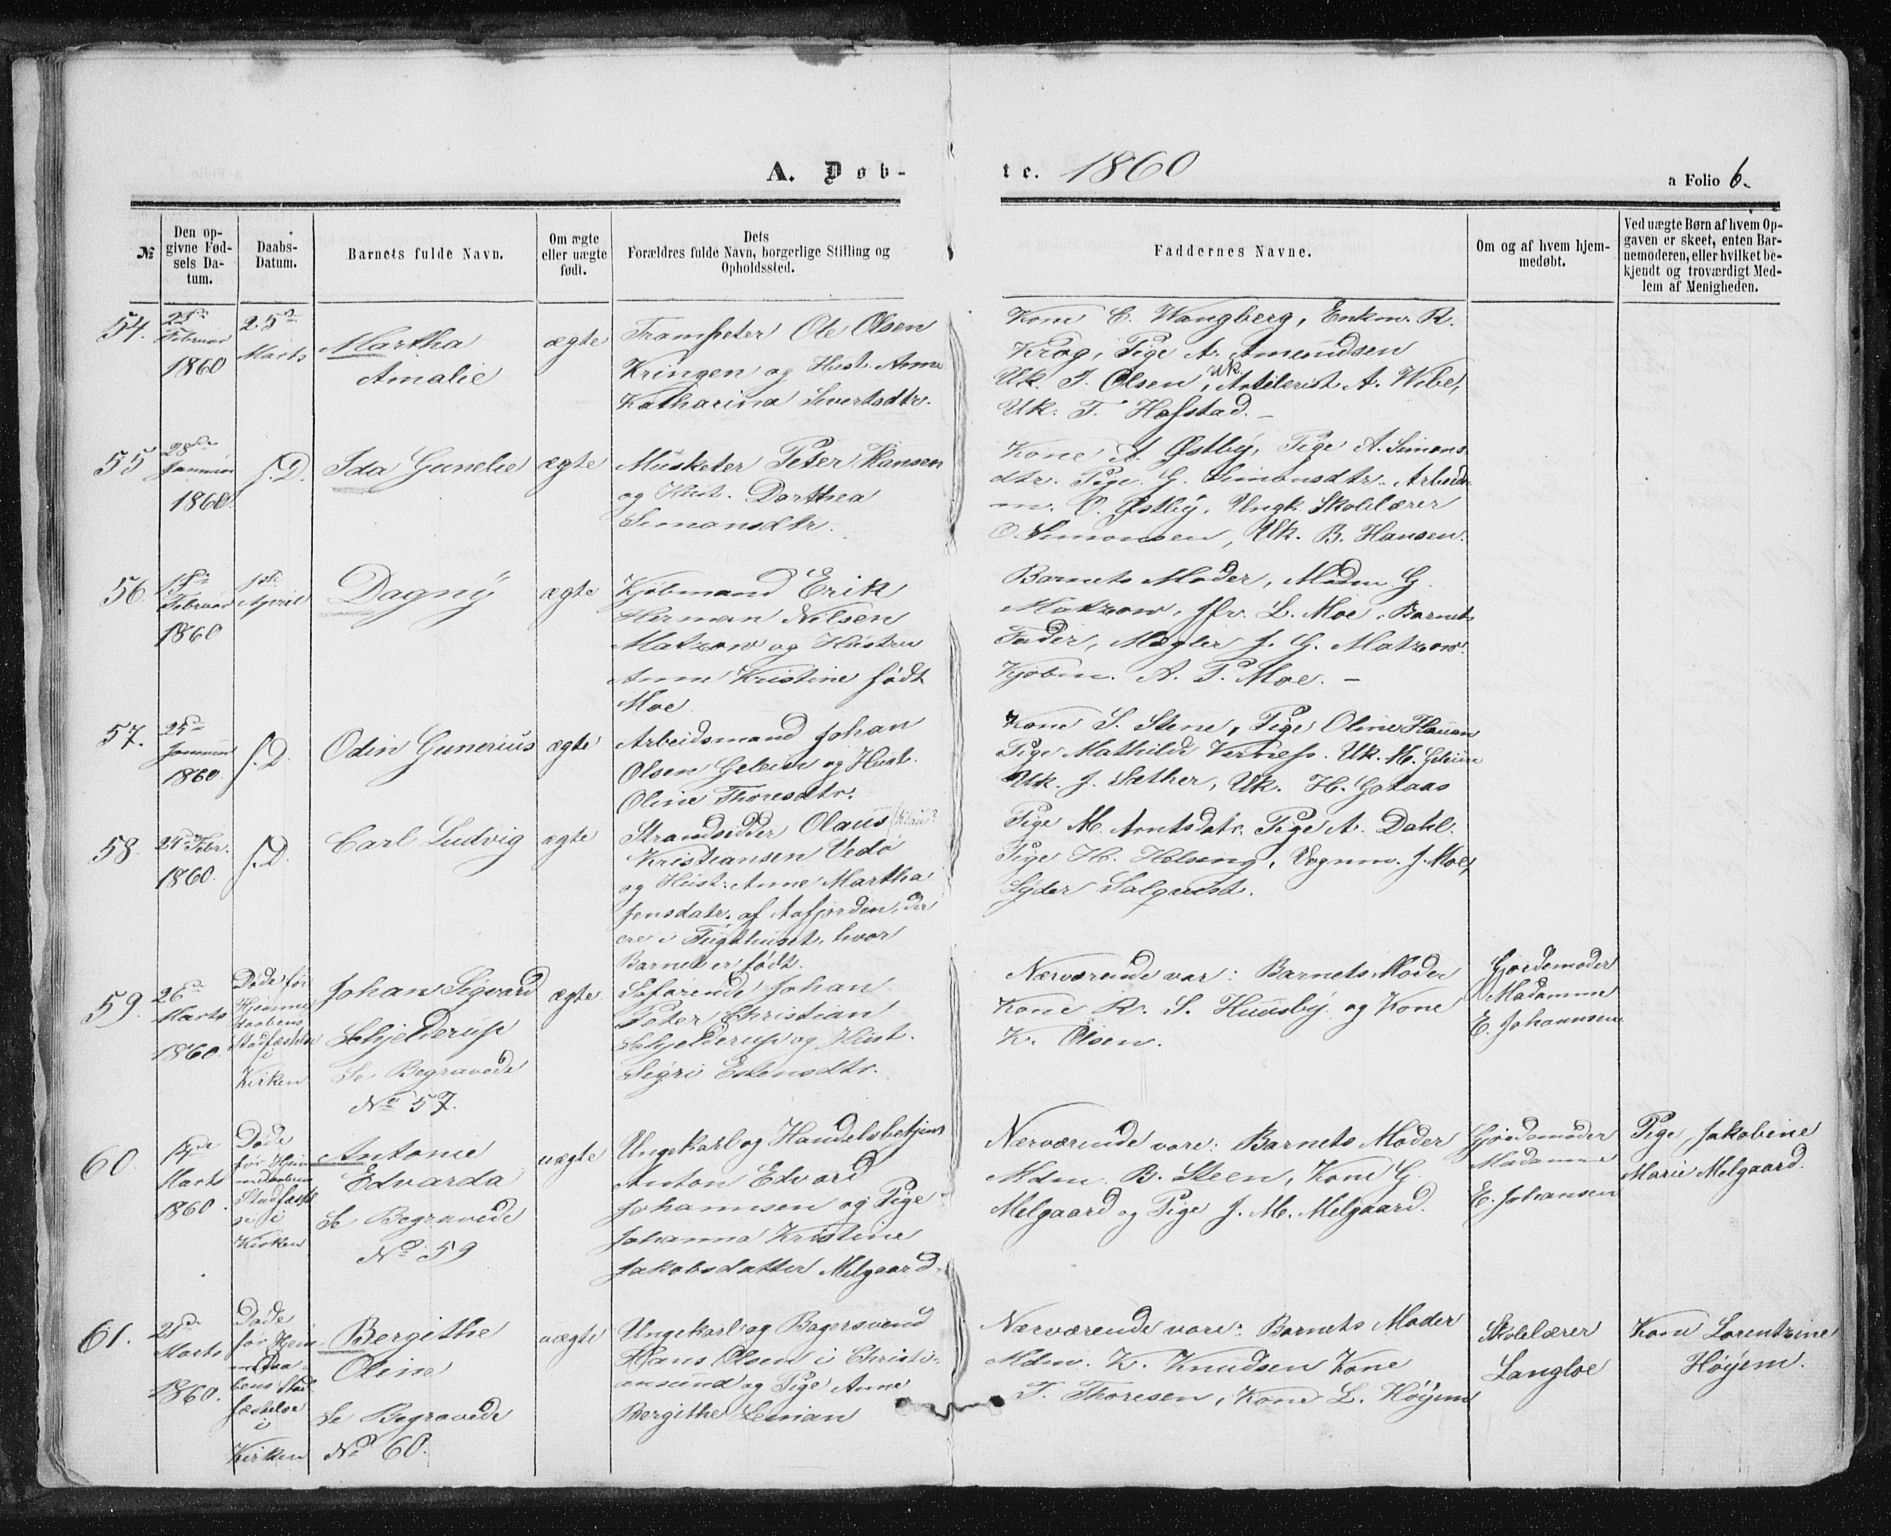 A. Døb-
te. 1860
a Folio 6.
№
Den opgivne Fødsels Datum.
Daabs-Datum.
Barnets fulde Navn.
Om ægte eller uægte födt.
Dets Forældres fulde Navn, borgerlige Stilling og Opholdssted.
Faddernes Navne.
Om og af hvem hjemmedøbt.
Ved uægte Børn af hvem Opgaven er skeet, enten Barnemoderen, eller hvilket bekjendt og troværdigt Medlem af Menigheden.
54.
Februar
1860
25de
Marts
Martha
Amalie
ægte
Trompeter Ole Olsen
Kringen og Hust. Anne
Katharina Sivertsdtr.
Kone C. Wangberg, Enkm. R.
Krog, Pige A. Amundsen
Uk. J. Olsen, Uk. Artilerist A. Wibe,
Uk. T. Hofstad. –
55
28de
Januar
1860.
s. D.
Ida Gunelie
ægte
Musketer Peter Hansen
og Hust. Dorthea
Simonsdtr.
Kone A. Østby, Pige A. Simons
dtr. Pige G. Simonsdtr. Arbeid
m. O. Østby, Ungk. Skolelærer
O. Simonsen, Uk. B. Hansen.
56.
Februar
1860
1ste
April
Dagny
ægte
Kjøbmand Erik
Herman Nilsen
Matzow og Hustru
Anne Kristine født
Moe
Barnets Moder, Mdm G.
Matzow, Jfr. L. Moe, Barnets
Fader, Mægler J. G. Matzow
Kjøbm. A. P. Moe. –
57.
Januar
1860.
s. D.
Odin Gunerius
ægte
Arbeidsmand Johan
Olsen Gelein og Hust.
Oline Thoresdtr.
Kone S. Stene, Pige Oline
Pige Mathilde Verness. Uk. M.
Uk. J. Sæther, Uk. H. Gotaas
58
Febr.
1860.
s. D.
Carl Ludvig
ægte
Strandsidder Olaus
Kristiansen Vedø
og Hust: Anne Martha
Jensdatr. af Aafjorden, der
ere i Tugthuset, hvor
Barnet er født.
Pige M. Arntsdatr. Pige A. Dahl.
Pige H. Helsing, Vognm. J. Moe,
Salquist.
59.
26de
Marts
1860.
Døde før
Hjemme
daabens
Stadfæstelse
i
Kirken
Johan Sigvard
Schjelderup
Se Begravede
No 57.
ægte
Søfarende Johan
Peter Christian
Schjelderup og Hust.
Sigri Estensdtr.
Nærværende var: Barnets Moder
Kone R. S. Huusby og Kone
K. Olsen.
Gjordemoder
Madamme
E. Johannsen
60.
Marts
1860.
Døde
før Hjem
medaabens
Stadfæstel
se i
Kirken
Antonie
Edvarda
Se Begravede
No 59
uægte
Ungekarl og Handelsbetjent
Anton Edvard
Johannsen og Pige
Johanna Kristine
Jakobsdatter Melgaard.
Nærværende vare: Barnets Moder
Mdm. B. Steen, Kone G.
Melgaard og Pige J. M. Melgaard.
Gjordemoder
Madamme
E. Johansen
Pige Jakobine
Marie Melgaard.
61.
Marts
1860.
Døde
før Hjem
medaa
bens Stad
fæstelse
i
Kirken
Bergithe
Oline
Se Begravede
No 60.
uægte
Ungekarl og Bagersvend
Hans Olsen i Christi-
ansund og Pige Anne
Bergithe
Nærværende vare: Barnets Moder
Mdm. K. Knudsen Kone
T. Thoresen, Kone L. Høyem
Skolelærer
Langloe
Kone Lorentzine
Høyem.